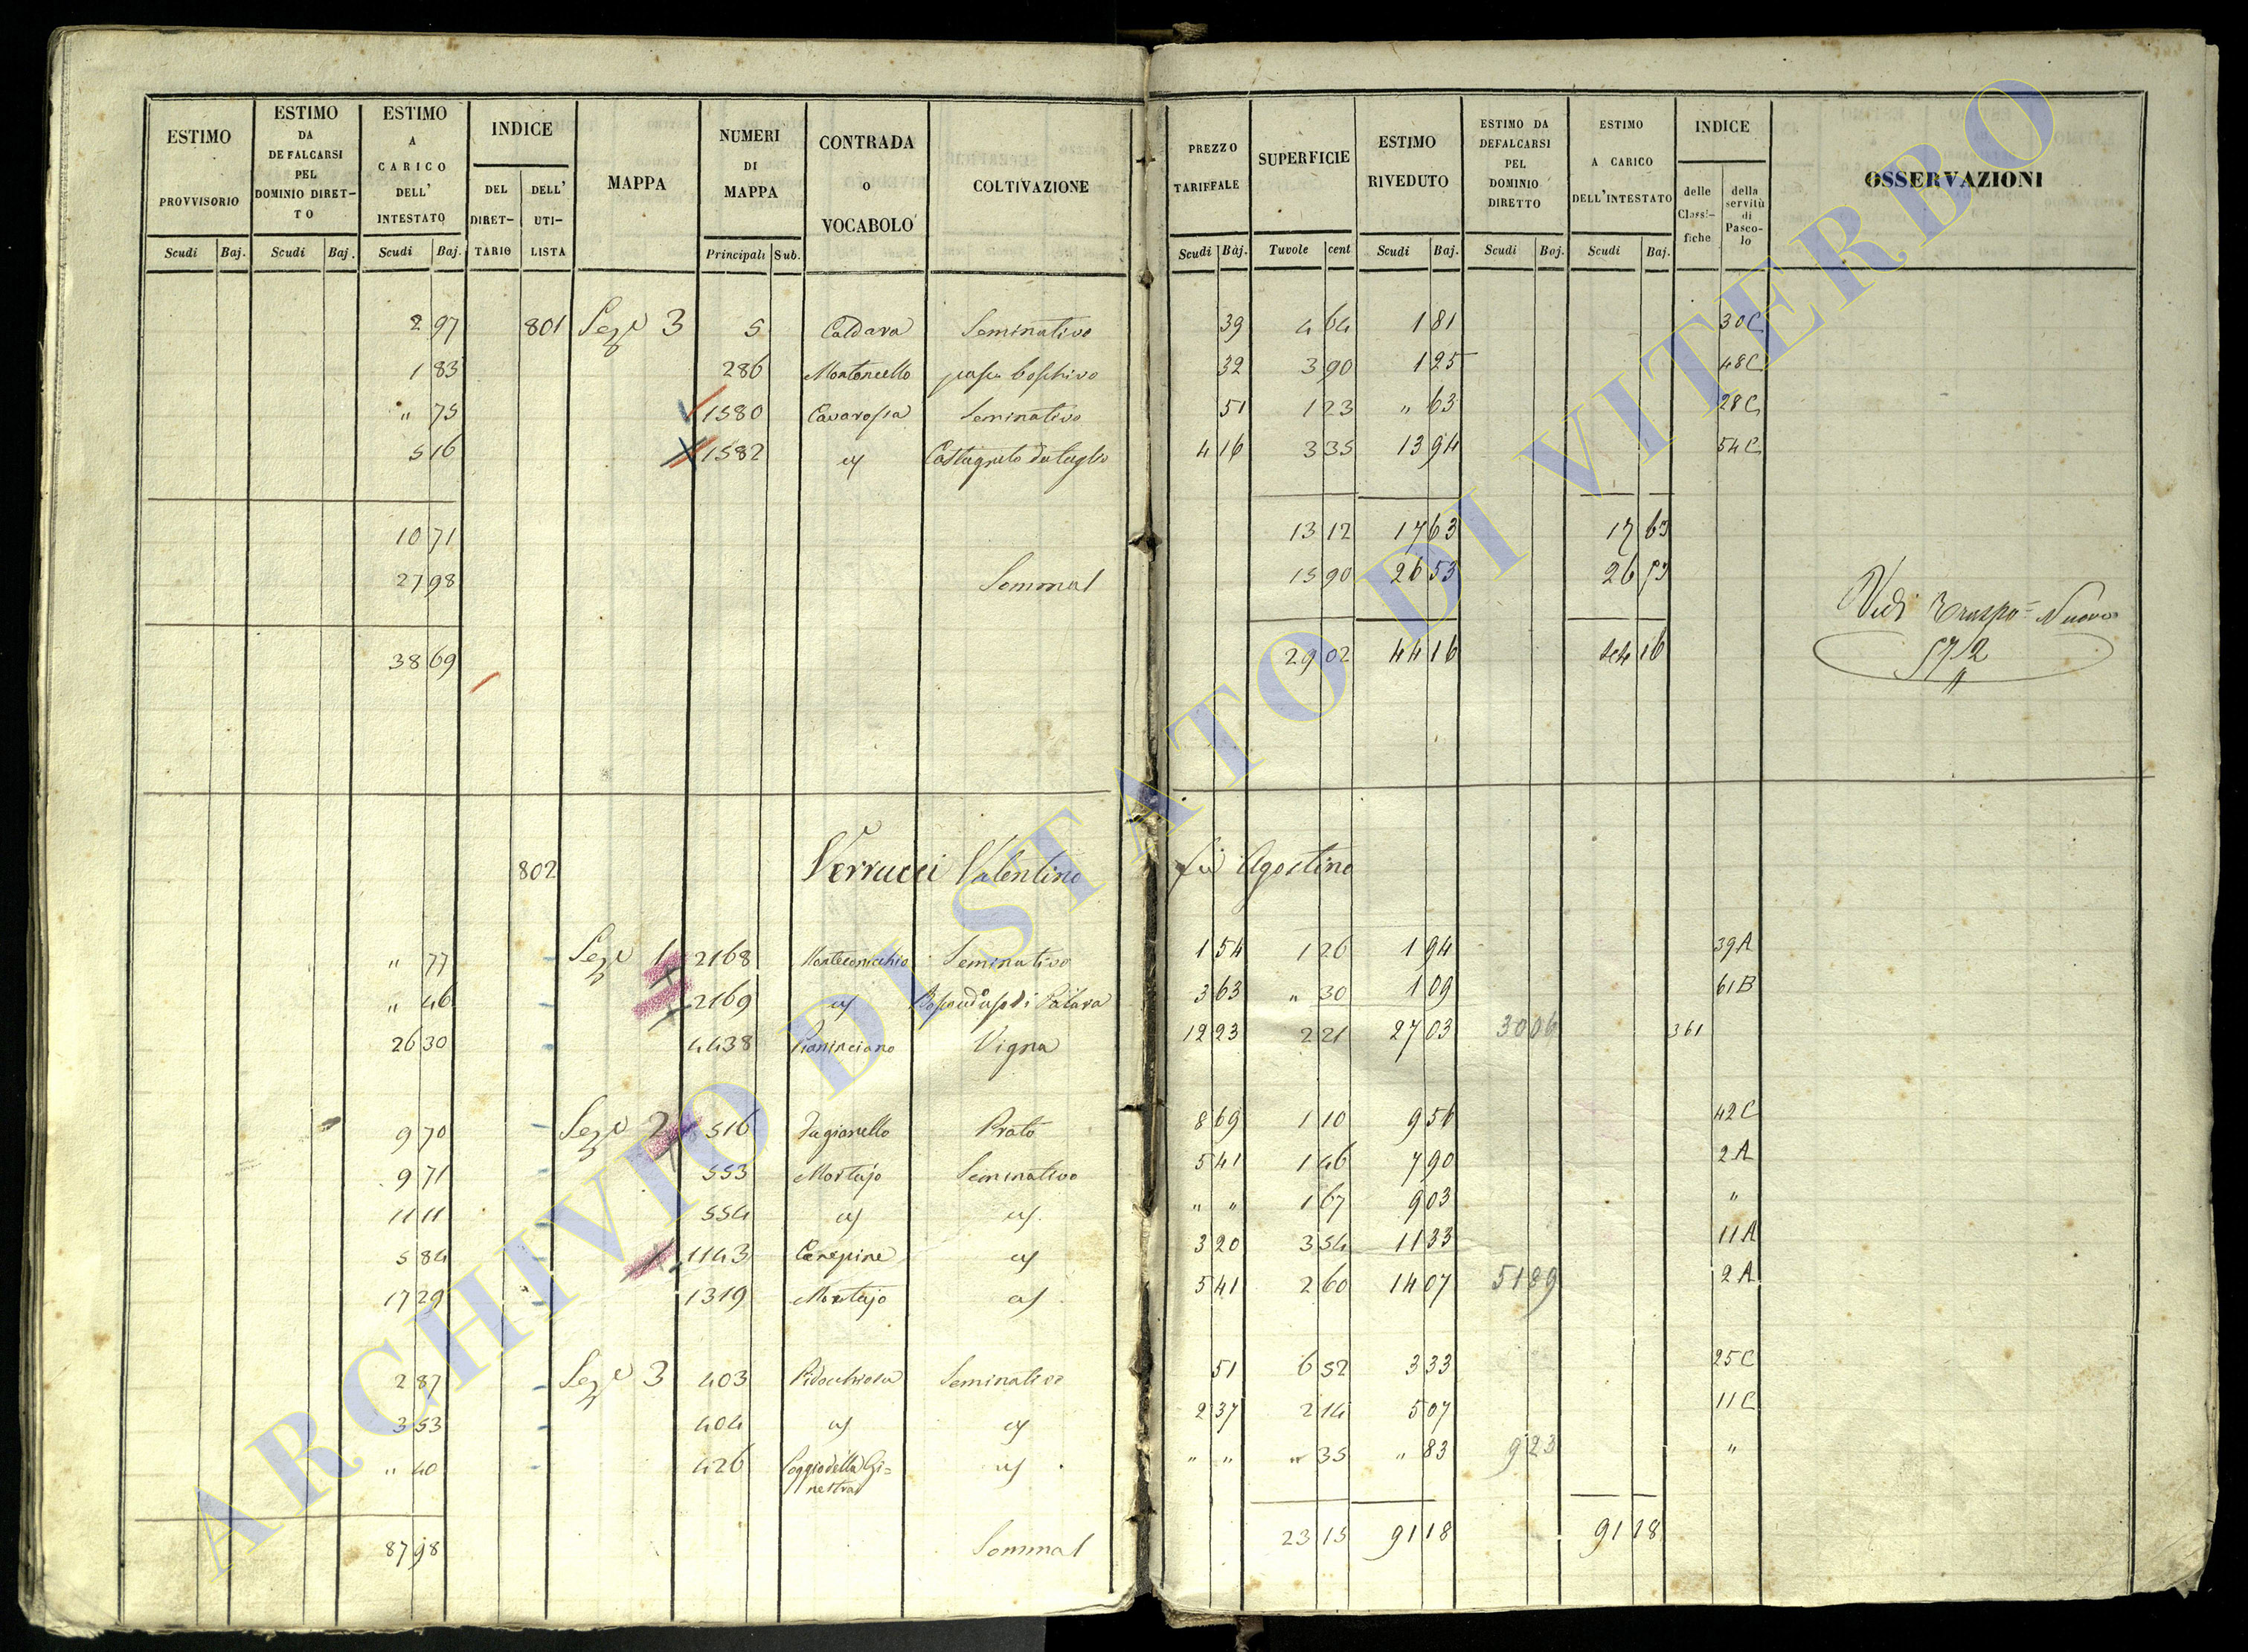 ESTIMO PROVVISORIO
ESTIMO DA DEFALCARSI PEL DOMINIO DIRET-TO
ESTIMO A CARICO DELL' INTESTATO
INDICE
DEL DIRET-TARIO
DELL' UTI-LISTA
MAPPA
NUMERI DI MAPPA
CONTRADA O VOCABOLO
COLTIVAZIONE
PREZZO TARIFFALE
SUPERFICIE
ESTIMO RIVEDUTO
ESTIMO DA DEFALCARSI PEL DOMINIO DIRETTO
ESTIMO A CARICO DELL'INTESTATO
INDICE
delle Classi-fiche
della servitù di Pasco-lo
OSSERVAZIONI
Scudi Baj. Scudi Baj. Scudi Baj. Principali Sub. Scudi Baj. Tavole cent Scudi Baj. Scudi Baj. Scudi Baj.
2 97 801 Sez.e 3 5 Caldara Seminativo 39 4 64 1 81 30C
1 83 286 Montoncello pasc. boschivo 32 3 90 1 25 48C
" 75 1580 Cavarossa Seminativo 51 1 23 " 63 28C
5 16 1582 Castagneto da taglio 4 16 3 35 13 94 54C
10 71 13 12 17 63 17 63
27 98 Somma 15 90 26 53 26 53
38 69 29 02 44 16 44 16
Vedi Traspo Nuovo
572
802 Verrucci Valentino fu Agostino
" 77 Sez.e 1 2168 Seminativo 1 54 1 26 1 94 39A
" 46 2169 3 63 " 30 1 09 61B
26 30 4438 Vigna 12 23 2 21 27 03 3006 361
9 70 Sez.e 2 516 Fagianello Prato 8 69 1 10 9 56 42C
9 71 553 Mortajo Seminativo 5 41 1 46 7 90 2A
11 11 554 " " 1 67 9 03 "
5 84 1143 Canepine 3 20 3 54 11 33 11A
17 29 1319 Mortajo 5 41 2 60 14 07 5189 2A
2 87 Sez.e 3 403 Pidocchiosa Seminativo 51 6 52 3 33 25C
3 53 404 2 37 2 14 5 07 11C
" 40 426 Poggio della Gi=nestra " " " 35 " 83 923 "
87 98 Somma 23 15 91 18 91 18
ARCHIVIO DI STATO DI VITERBO